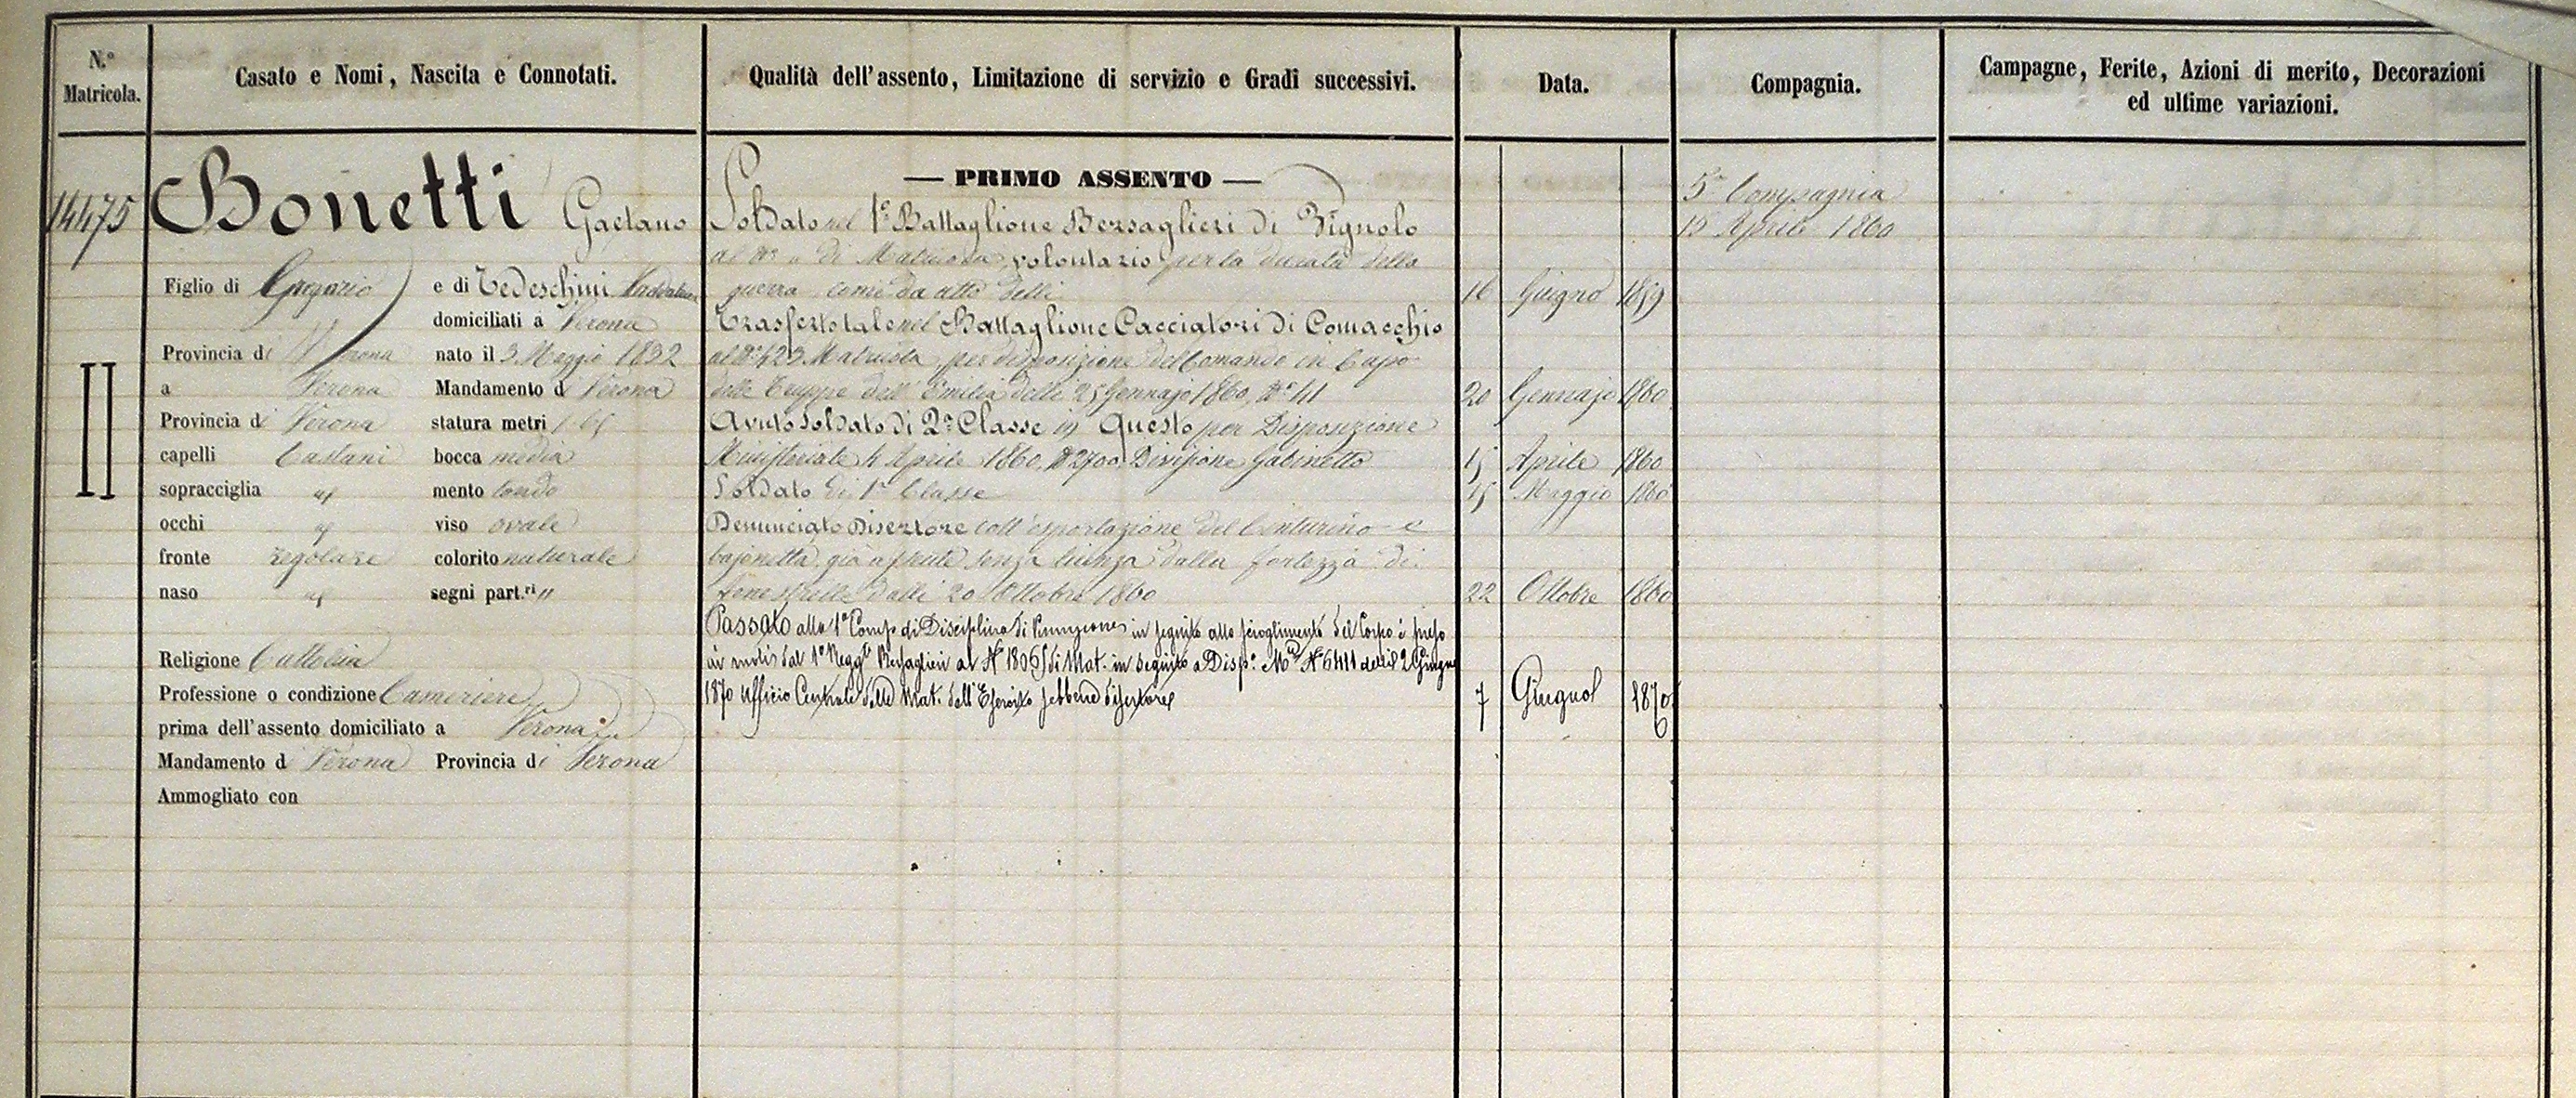 N.º Matricola.
Casato e Nomi, Nascita e Connotati.
Qualità dell'assento, Limitazione di servizio e Gradi successivi.
Data.
Compagnia.
Campagne, Ferite, Azioni di merito, Decorazioni
ed ultime variazioni.
14475
Bonetti Gaetano
Figlio di Gregorio e di Tedeschini
domiciliati a Verona
Provincia di Verona nato il 3 Maggio 1832
a Verona Mandamento di Verona
Provincia di Verona statura metri
capelli Castani bocca media
sopracciglia id mento tondo
occhi id viso ovale
fronte regolare colorito naturale
naso id segni part.ri "
Religione Cattolica
Professione o condizione Cameriere
prima dell'assento domiciliato a Verona
Mandamento di Verona Provincia di Verona
Ammogliato con
II
— PRIMO ASSENTO —
Soldato nel 1º Battaglione Bersaglieri di Vignolo
al Nº " di Matricola, volontario per la durata della
guerra come da atto delli 16 Giugno 1859
Trasferto tale nel Battaglione Cacciatori di Comacchio
al Nº 423 Matricola, per disposizione del Comando in Capo
delle Truppe dell'Emilia delli 25 Gennajo 1860, Nº 41 20 Gennajo 1860
Avuto Soldato di 2ª Classe in Questo per Disposizione
Ministeriale 4 Aprile 1860, Nº 2700, Divisione Gabinetto 15 Aprile 1860
Soldato di 1ª Classe 15 Maggio 1860
Denunciato Disertore coll'esportazione del Centurino e
bajonetta, già assente senza licenza dalla fortezza di
fenestrelle dalli 20 Ottobre 1860 22 Ottobre 1860
Passato alla 1ª Comp. di Disciplina di Punizione, in seguito allo scioglimento del Corpo è preso
in nota dal 1º Regg.to Bersaglieri al Nº di Mat. in seguito a Disp.e M.le Nº 6411 delli 2 Giugno
1870 Ufficio Centrale delle Mat. dell'Esercito sebbene disertore 7 Giugno 1870
5ª Compagnia
15 Aprile 1860